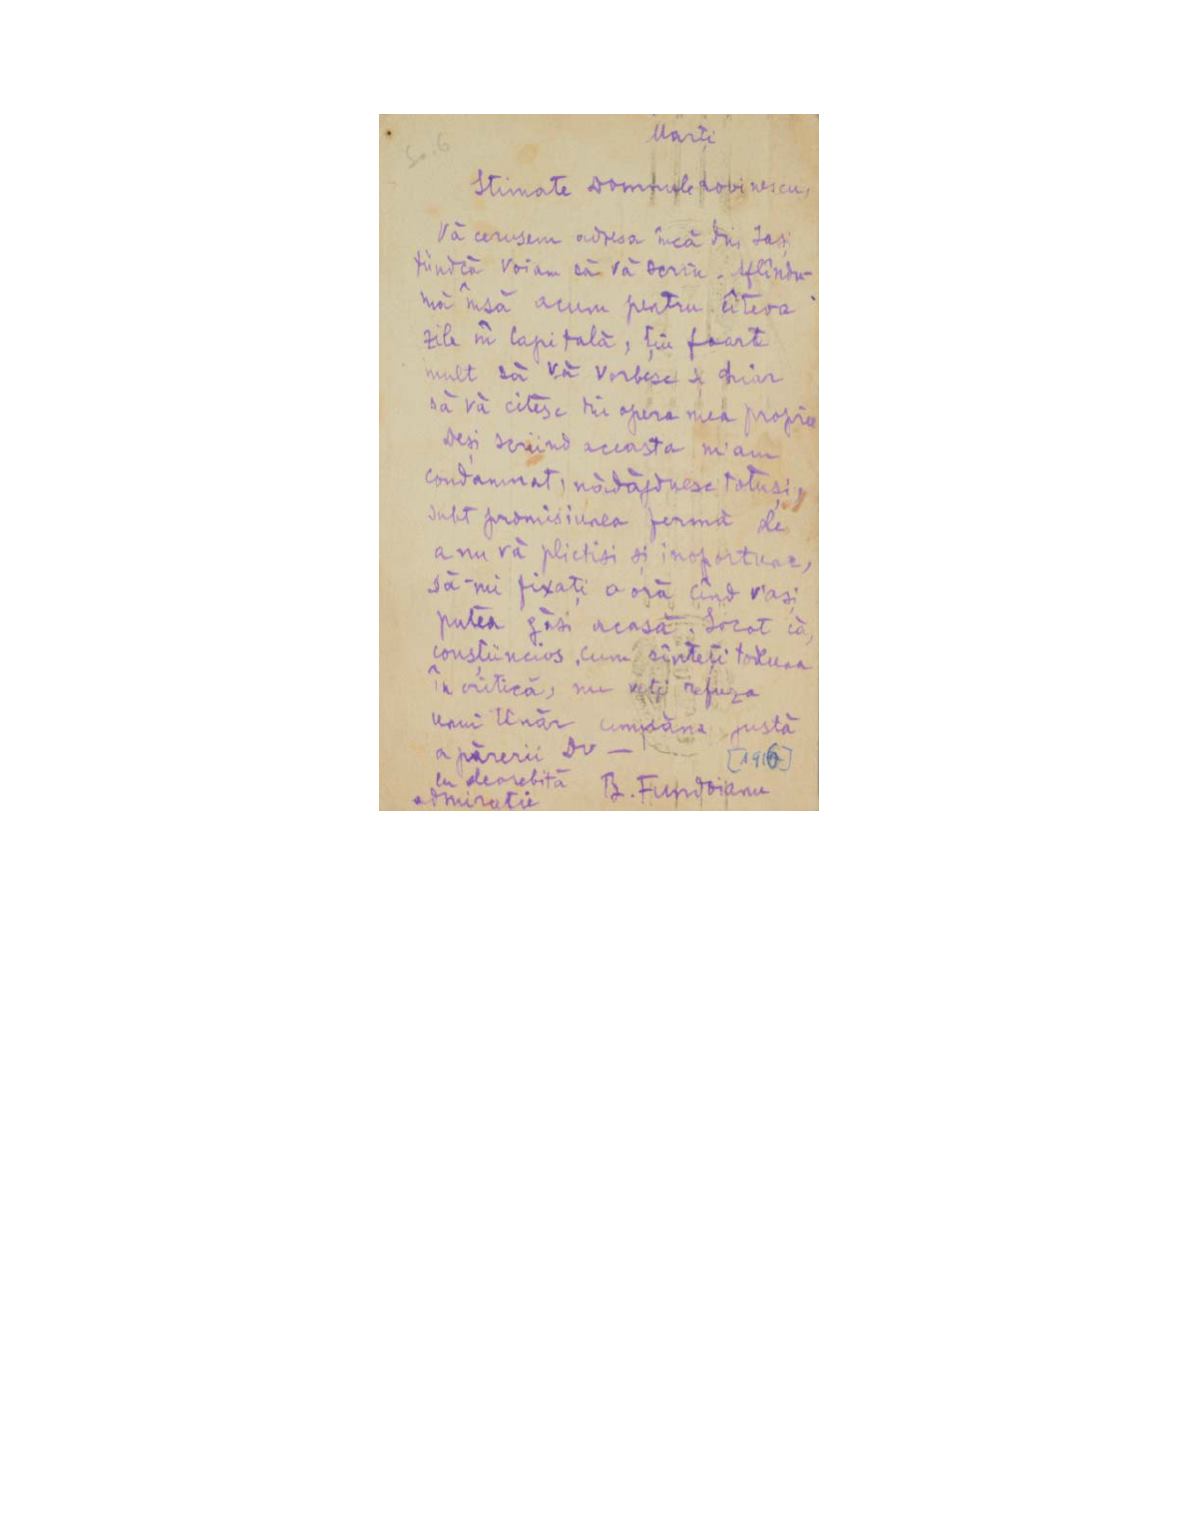 Marți
Stimate Domnule Lovinescu,
Vă cerusem adresa încă din Iași
fiindcă voiam să vă scriu. Aflîndu-
mă însă acum pentru cîteva
zile în Capitală, țiu foarte
mult să vă vorbesc și chiar
să vă citesc din opera mea proprie
Deși scriind aceasta m'am
condamnat, nădăjduesc totuși,
subt promisiunea fermă de
a nu vă plictisi și inoportuna,
să-mi fixați o oră cînd v'ași
putea găsi acasă. Socot că,
conștiincios cum sînteți totdeauna
în critică, nu veți refuza
unui tînăr cumpăna justă
a părerii Dv —
[1916]
cu deosebită
admirație
B. Fundoianu